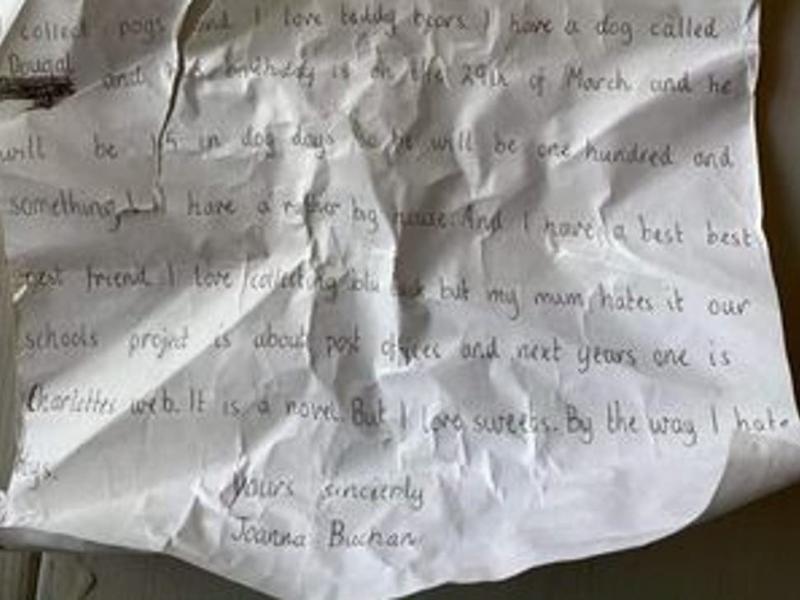 collect pogs and I love teddy bears. I have a dog called
Dougal and his birthday is on the 29th of March and he
will be 15 in dog days he will be one hundred and
something I have a rather big house. And I have a best best
best friend I love collecting blu but my mum hates it our
schools project is about post offices and next years one is
Charlottes web. It is a novel. But I love sweets. By the way I hate
Yours sincerly
Joanna Buchan